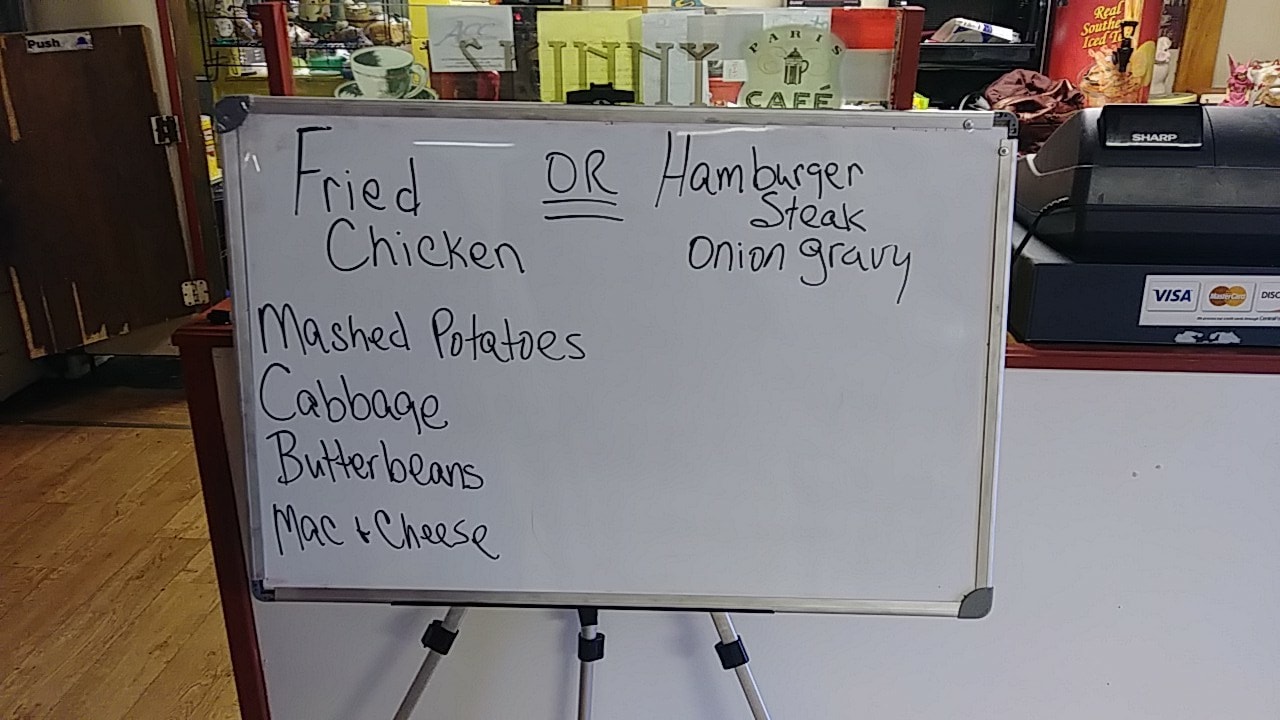 Push
SKINNY
PARIS
CAFÉ
Real
Iced
SHARP
VISA
MasterCard
Fried OR Hamburger
Steak
Chicken Onion gravy
Mashed Potatoes
Cabbage
Butterbeans
Mac + Cheese